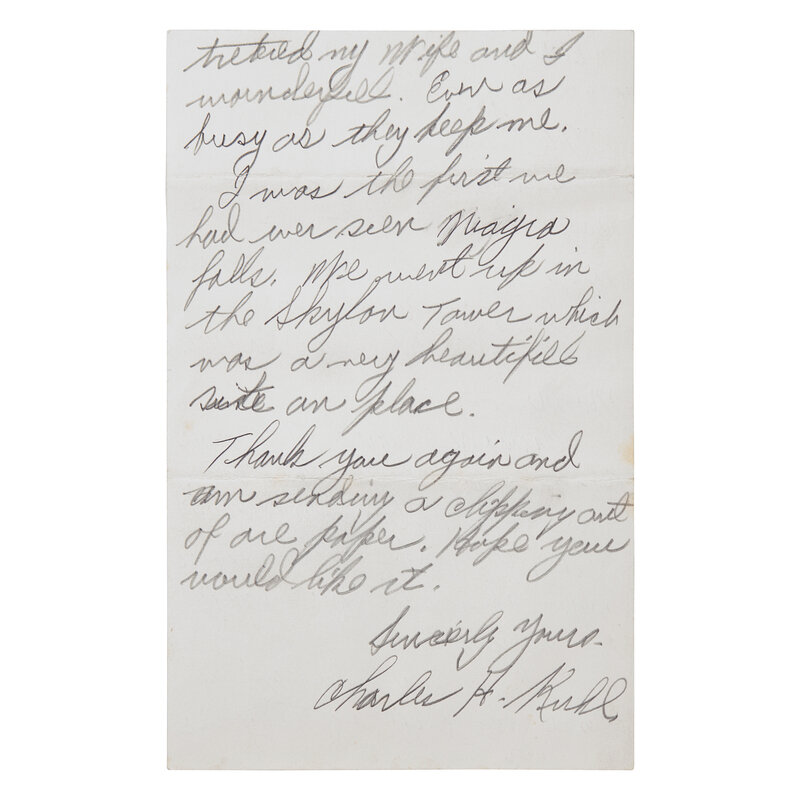 treated my Wife and I
wonderfull. Even as
busy as they keep me.
I was the first we
had ever seen Niagra
falls. We went up in
the Skylon Tower which
was a very beautifill
site an place.
Thank you again and
am sending a clipping out
of are paper. Hope you
would like it.
Sincerly Yours.
Charles H. Kuhl